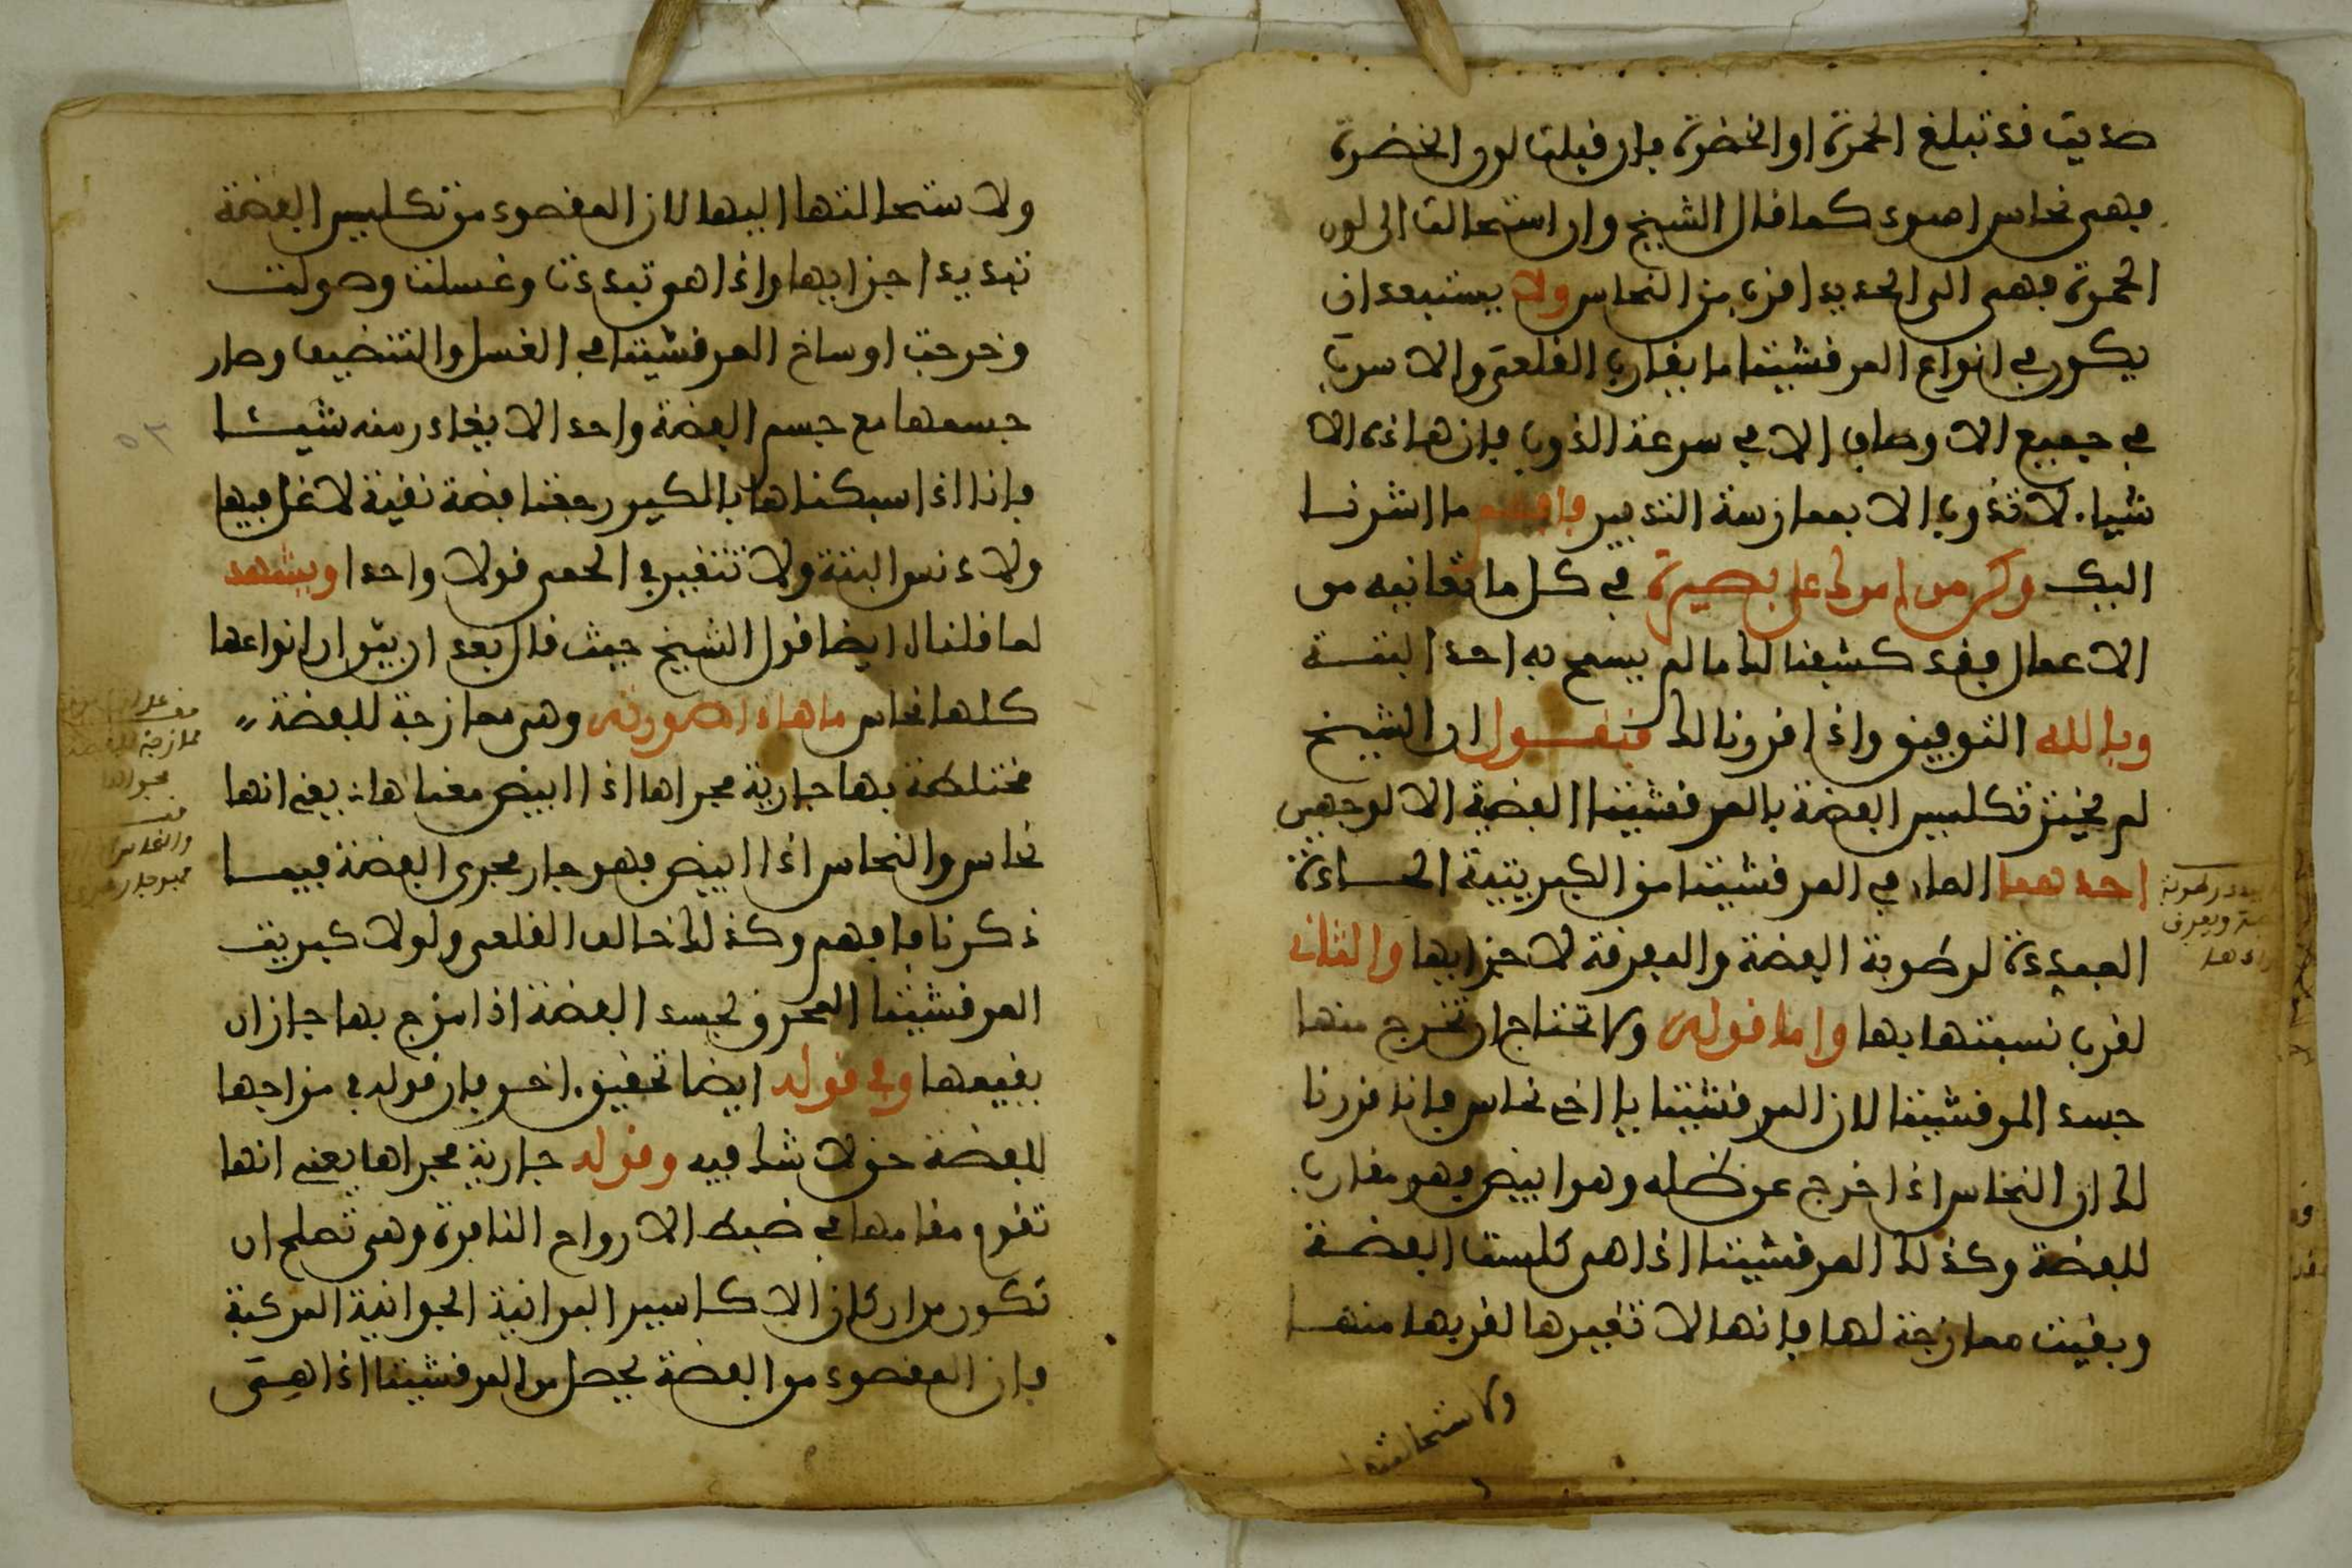 صديت فد تبلغ الحمرة او الخضرة فان قبلت لون الخضرة
فهي نحاس اصود كما قال الشيخ وان استحالت الى لون
الحمرة فهي الى الحديد اقرب من النحاس ولا يستبعد ان
يكون في انواع المرقشيثا ما يقارب القلعي والاسرب
في جميع الاوصاف الا في سرعة الذوب فان هاذه الا
شياء لا تذوب الا بممازسة التدبير فافهم ما اشرنا
اليك وكن من امرك على بصيرة في كل ما تعانيه من
الاعمال فقد كشفنا لك ما لم يسمح به احد البتة
وبالله التوفيق واذا قررنا لك فنقول ان الشيخ
لم يختر تكليس الفضة بالمرقشيثا الفضية الا لوجهين
احدهما الحار في المرقشيثا من الكبريتية الحادة
المبددة لرطوبة الفضة والمفرقة لاجزايها والثاني
لقرب نسبتها بها واما قوله ولا تحتاج ان تخرج منها
جسد المرقشيثا لان المرقشيثا يا اخي نحاس فانا قررنا
لك ان النحاس اذا خرج عن ظله وهو ابيض فهو مقارب
للفضة وكذلك المرقشيثا اذا هي كلست الفضة
وبقيت ممازجة لها فانها لا تغيرها لقربها منها
ولا ستحالتها
ولا ستحالتها اليها لان المقصود من تكليس الفضة
تبديد اجزايها واذا هو تبددت وغسلت وصولت
وخرجت اوساخ المرقشيثا في الغسل والتنضيف وصار
جسمها مع جسم الفضة واحدا لا يغادر منه شيئا
فانا اذا سبكناها بالكير رجعنا فضة نقية لا غل فيها
ولا دنس البتة ولا تتغير في الحمى قولا واحدا ويشهد
لما قلنا ايضا قول الشيخ حيث قال بعد ان بين ان انواعها
كلها نحاس ما هاذا صورته وهي ممازجة للفضة
مختلطة بها جارية مجراها اذا ابيض معناها يعني انها
نحاس والنحاس اذا ابيض فهو جار مجرى الفضة فيما
ذكرنا فافهم وكذلك خالف القلعي ولولا كبريت
المرقشيثا المحرق لجسد الفضة اذا مزج بها جاز ان
بقيمها وفي قوله ايضا تحقيق اخر فان قوله في مزاجها
للفضة حق لا شك فيه وقوله جارية مجراها يعني انها
تقوم مقامها في ضبط الارواح النافرة وهي تصلح ان
تكون من اركان الاكاسير البرانية الجوانية المركبة
فان المقصود من الفضة يحصل من المرقشيثا اذا هي